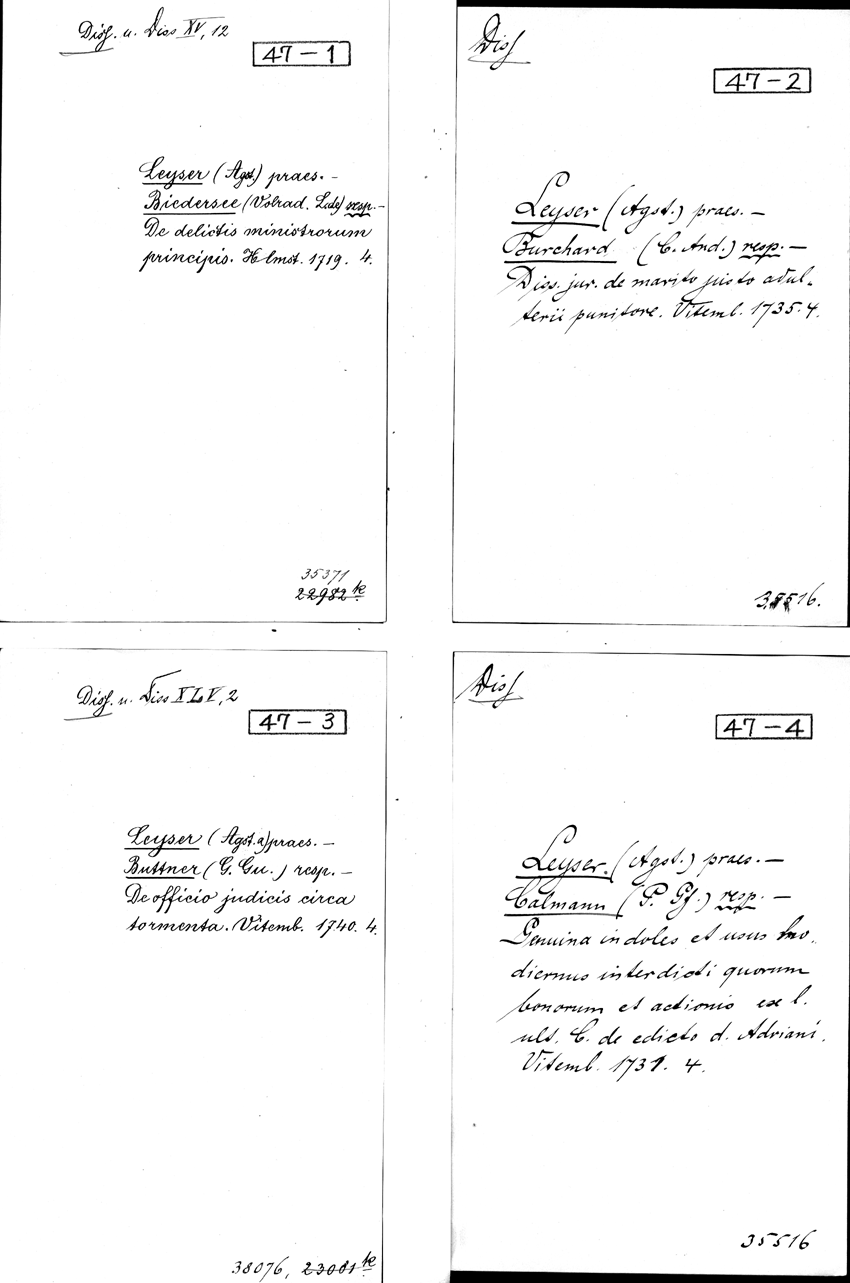 Diss. u. Diss XV, 12
47-1
Leyser (Agst.) praes. –
Biedersee (Volrad. Lds) resp. –
De delictis ministrorum
principis. Hlmst. 1719. 4.
35371
22982 k
Diss
47-2
Leyser (Agst.) praes. –
Burchard (C. And.) resp. –
Diss. jur. de marito justo adul-
terii punitore. Vitemb. 1735. 4.
35516.
Diss. u. Diss XLV, 2
47-3
Leyser (Agst. a) praes. –
Buttner (G. Gu.) resp. –
De officio judicis circa
tormenta. Vitemb. 1740. 4.
38076, 23081 k
Diss
47-4
Leyser. (Agst.) praes. –
Calmann (P. Gf.) resp. –
Genuina indoles et usus ho-
diernus interdicti quorum
bonorum et actionis ex l.
ult. C. de edicto d. Adriani.
Vitemb. 1731. 4.
35516